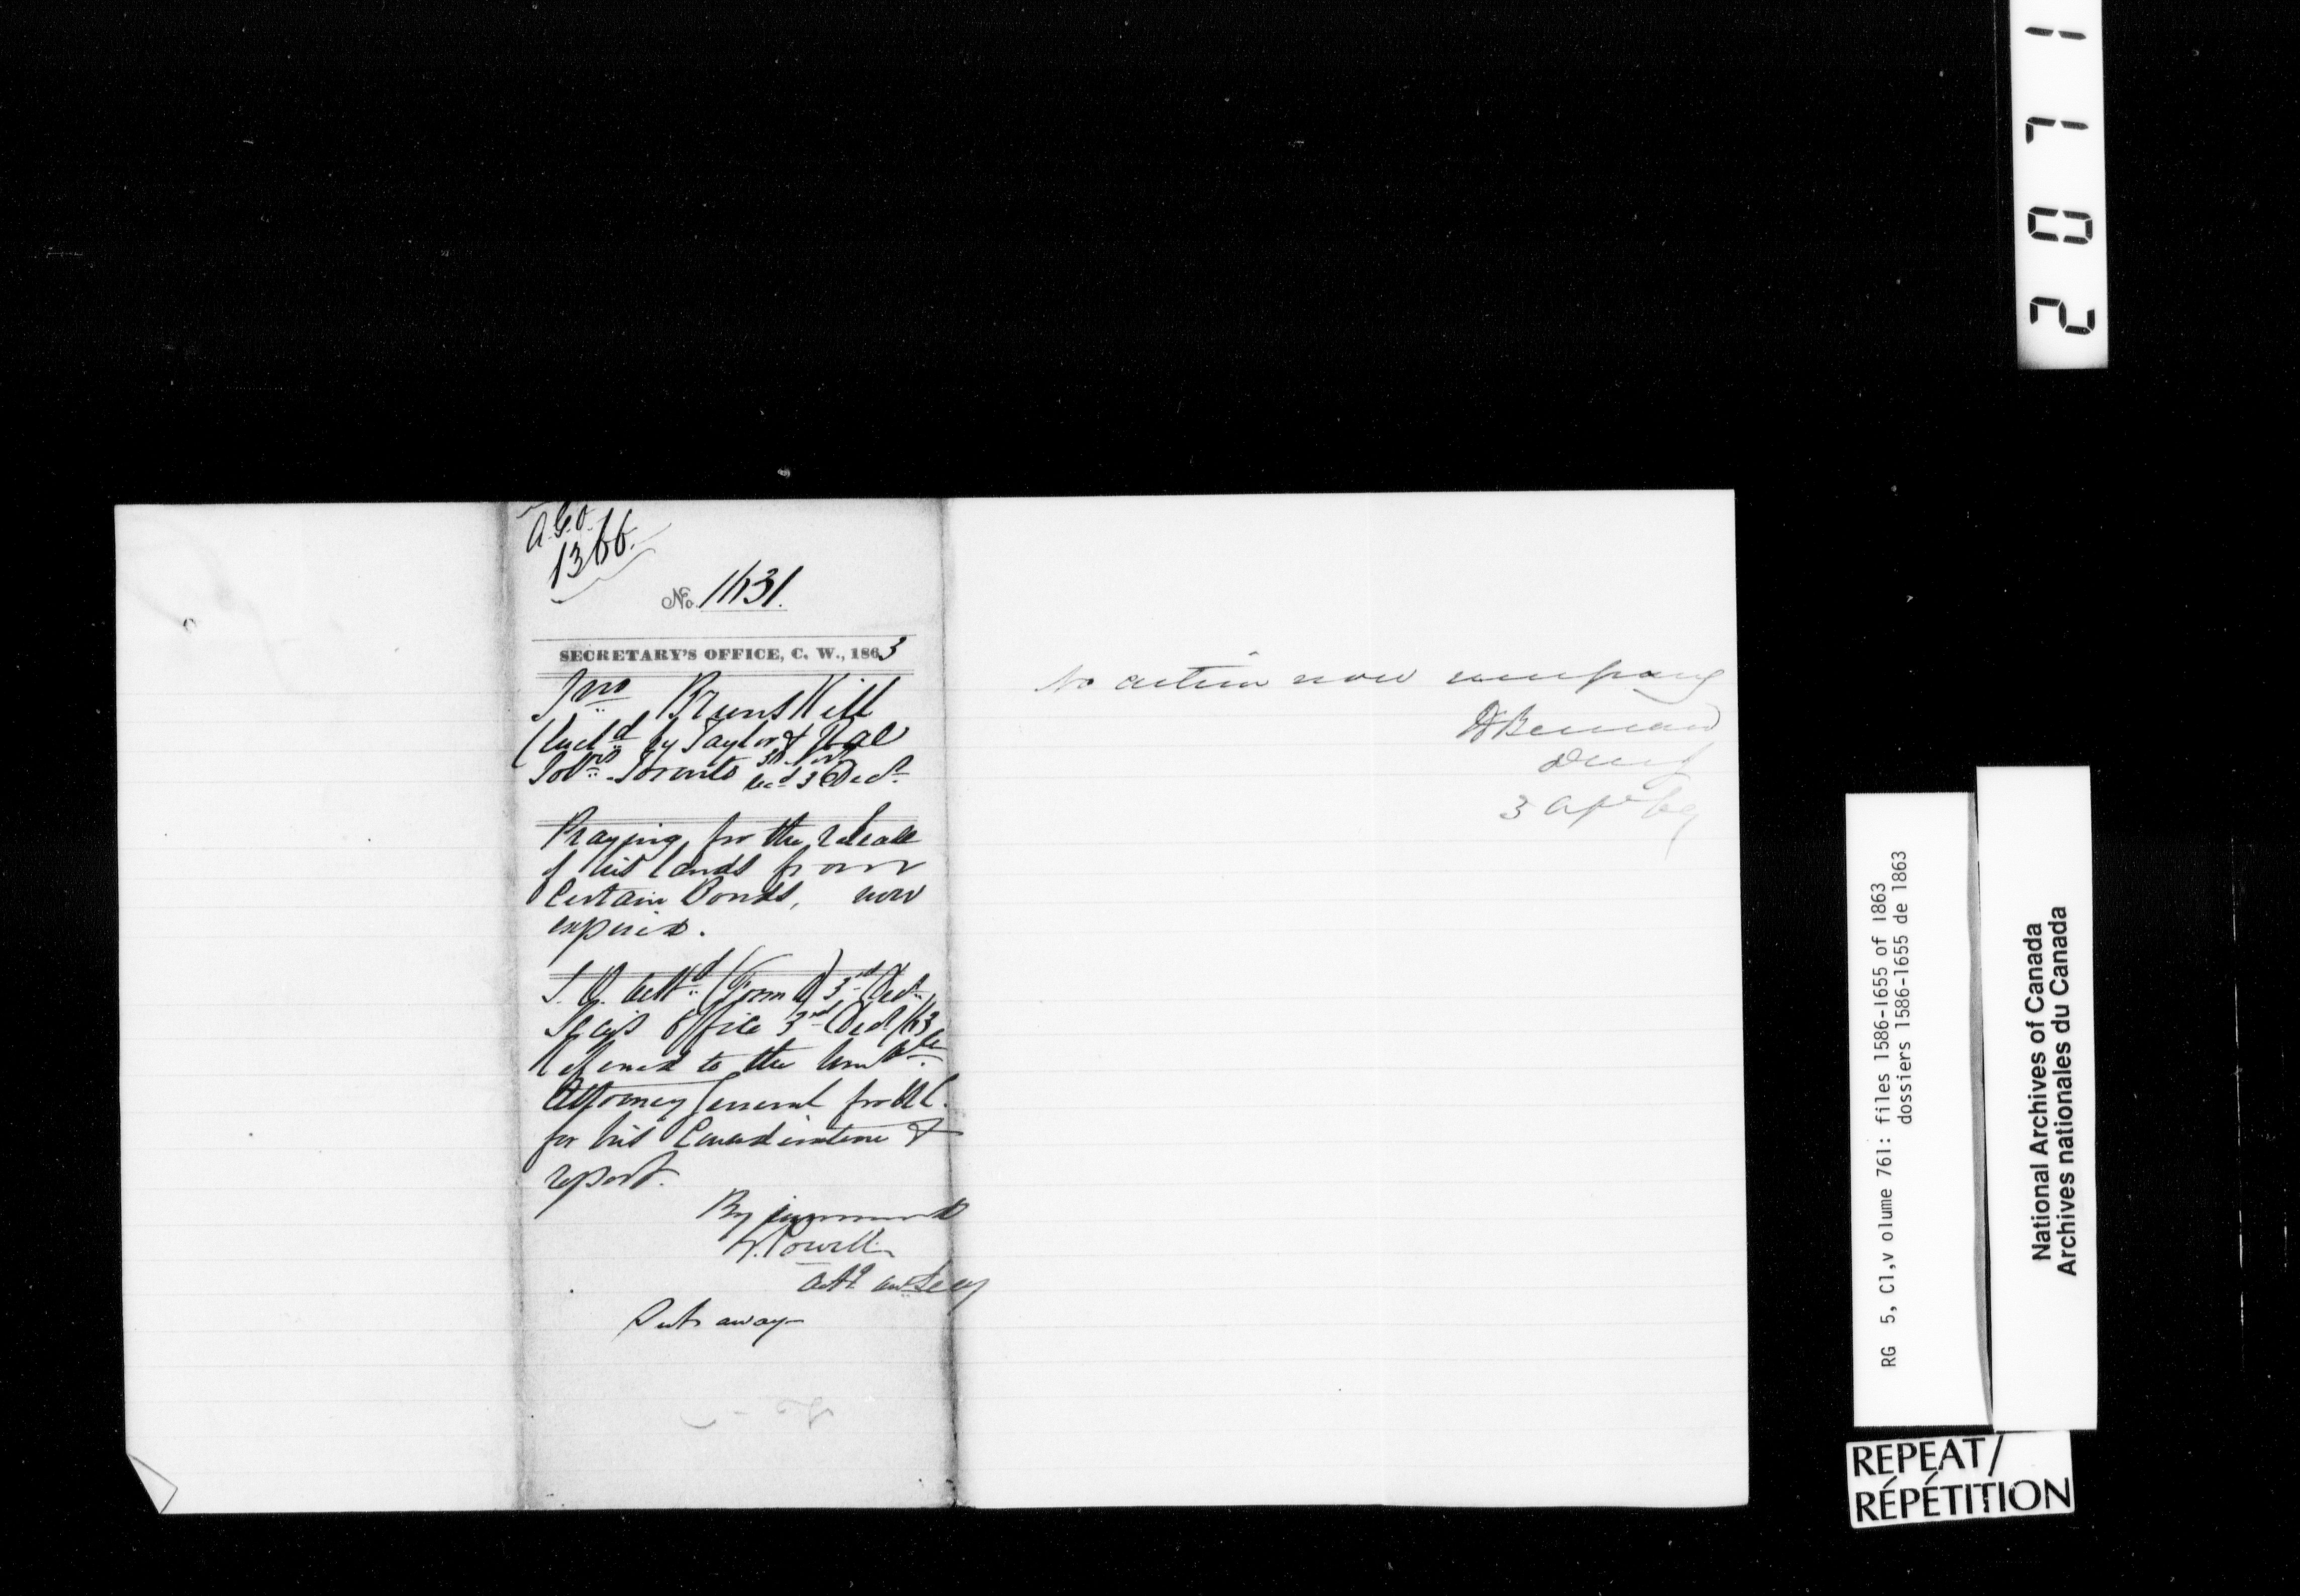 A.G.O.
1366.
No. 1631.
SECRETARY'S OFFICE, C. W., 1863
Jno Brunskill
(Encld by Taylor &
Solrs Toronto Recd 3 Decr
Praying for the release
of his lands from
Certain Bonds, now
expired.
Ackd (Form A) 3rd Decr
Secy's Office 3rd Decr /63
Referred to the Honble
Attorney General for U.C.
for his Consideration &
report.
By command
G. Powell
Actt asst Secy
Put away
No action now necessary
H Bernard
3 Apl 69
2071
RG 5, C1,v olume 761: files 1586-1655 of 1863
dossiers 1586-1655 de 1863
National Archives of Canada
Archives nationales du Canada
REPEAT/
RÉPÉTITION